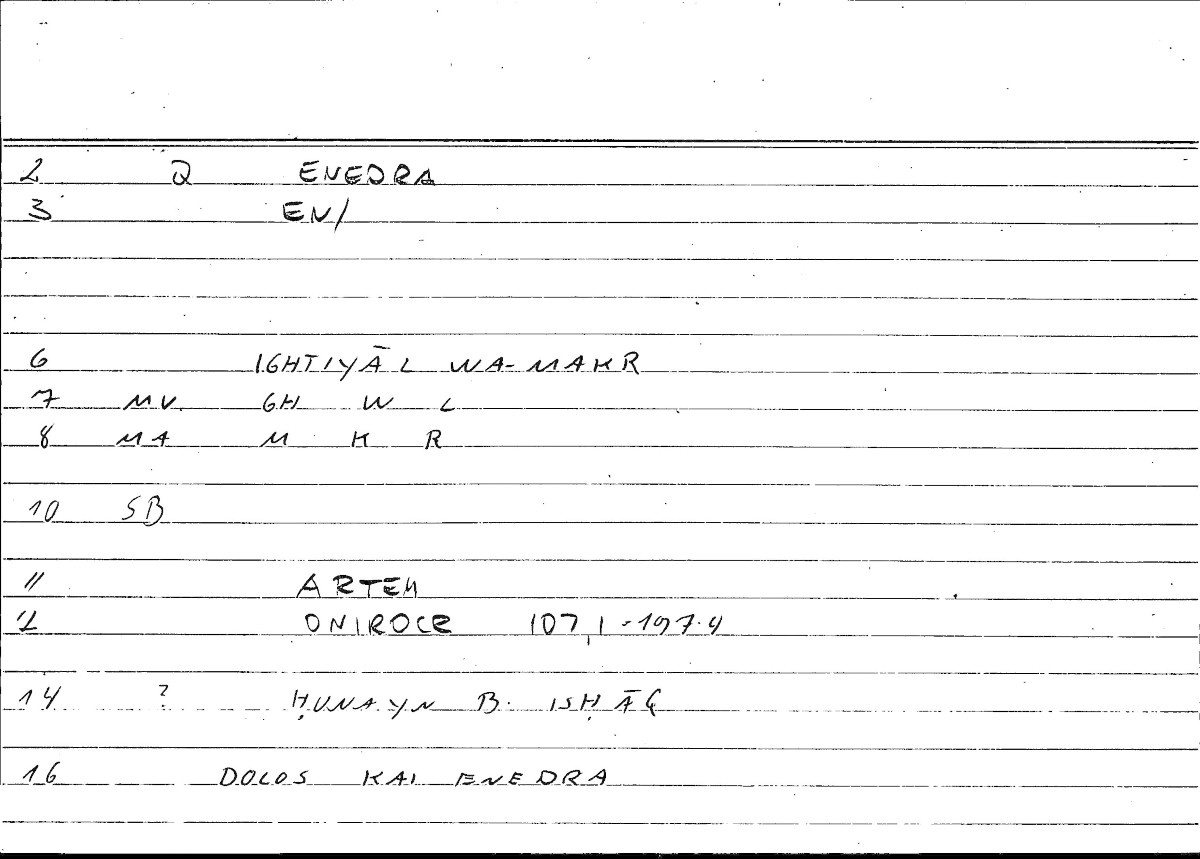 2 Q ENEDRA
3 EN/
6 IGHTIYĀL WA-MAKR
7 MV. GH W L
8 MA M K R
10 SB
11 ARTEM
12 ONIROCR 107,1-197.4
14 ? ḤUNAYN B. ISḤĀQ
16 DOLOS KAI ENEDRA